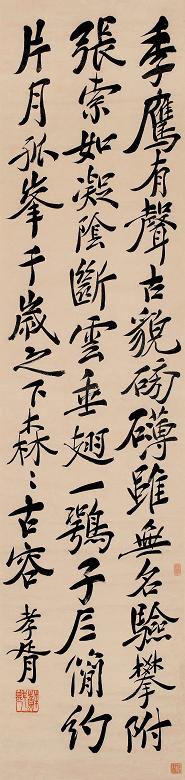 季鷹有聲古貌磅礴雖無名驗攀附
張索如凝陰斷雲垂翅一鶚子尺簡約
片月孤峯千歲之下森〻古容 孝胥